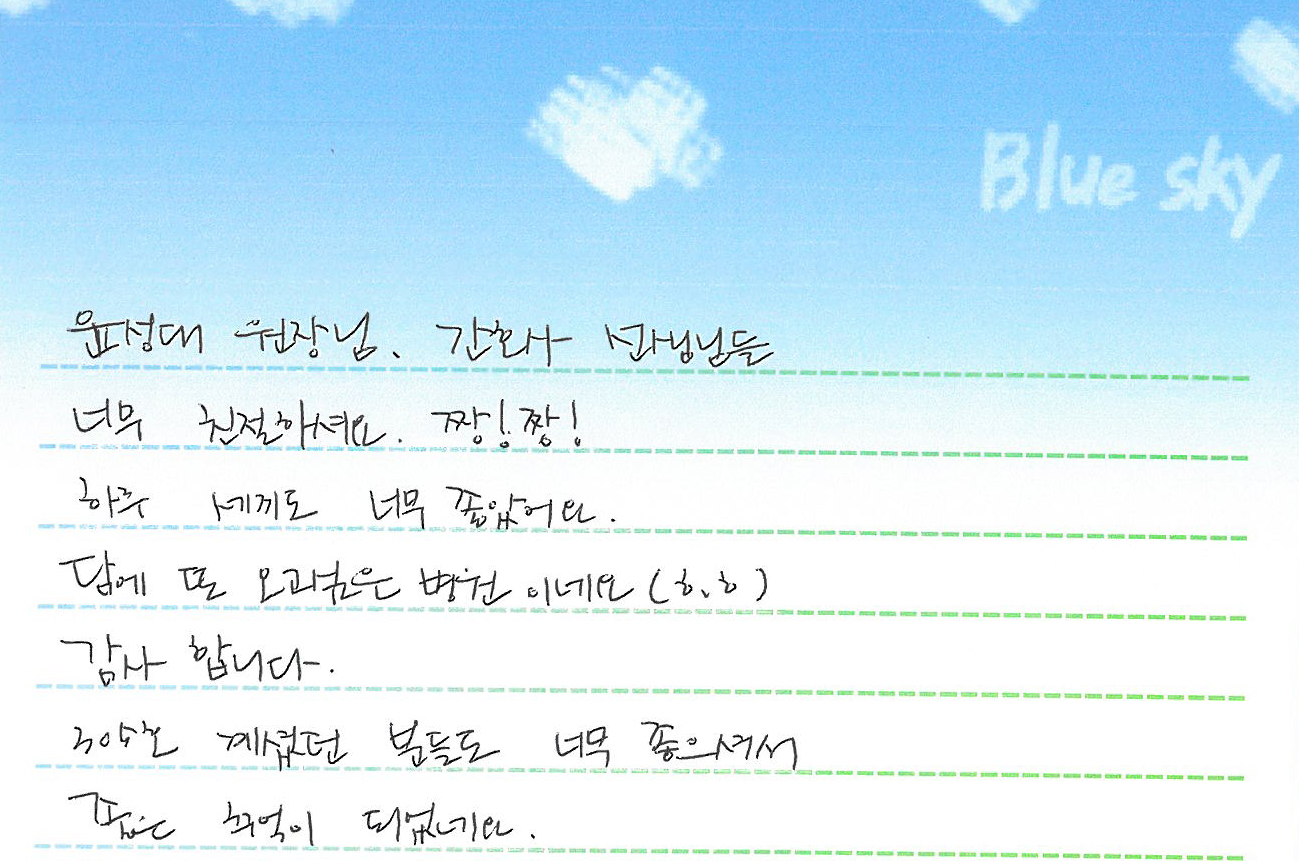 Blue sky
윤성대 원장님. 간호사 선생님들
너무 친절하셔요. 짱! 짱!
하루 세끼도 너무 좋았어요.
담에 또 오고싶은 병원 이네요 (ㅎ.ㅎ)
감사 합니다.
305호 계셨던 분들도 너무 좋으셔서
좋은 추억이 되었네요.